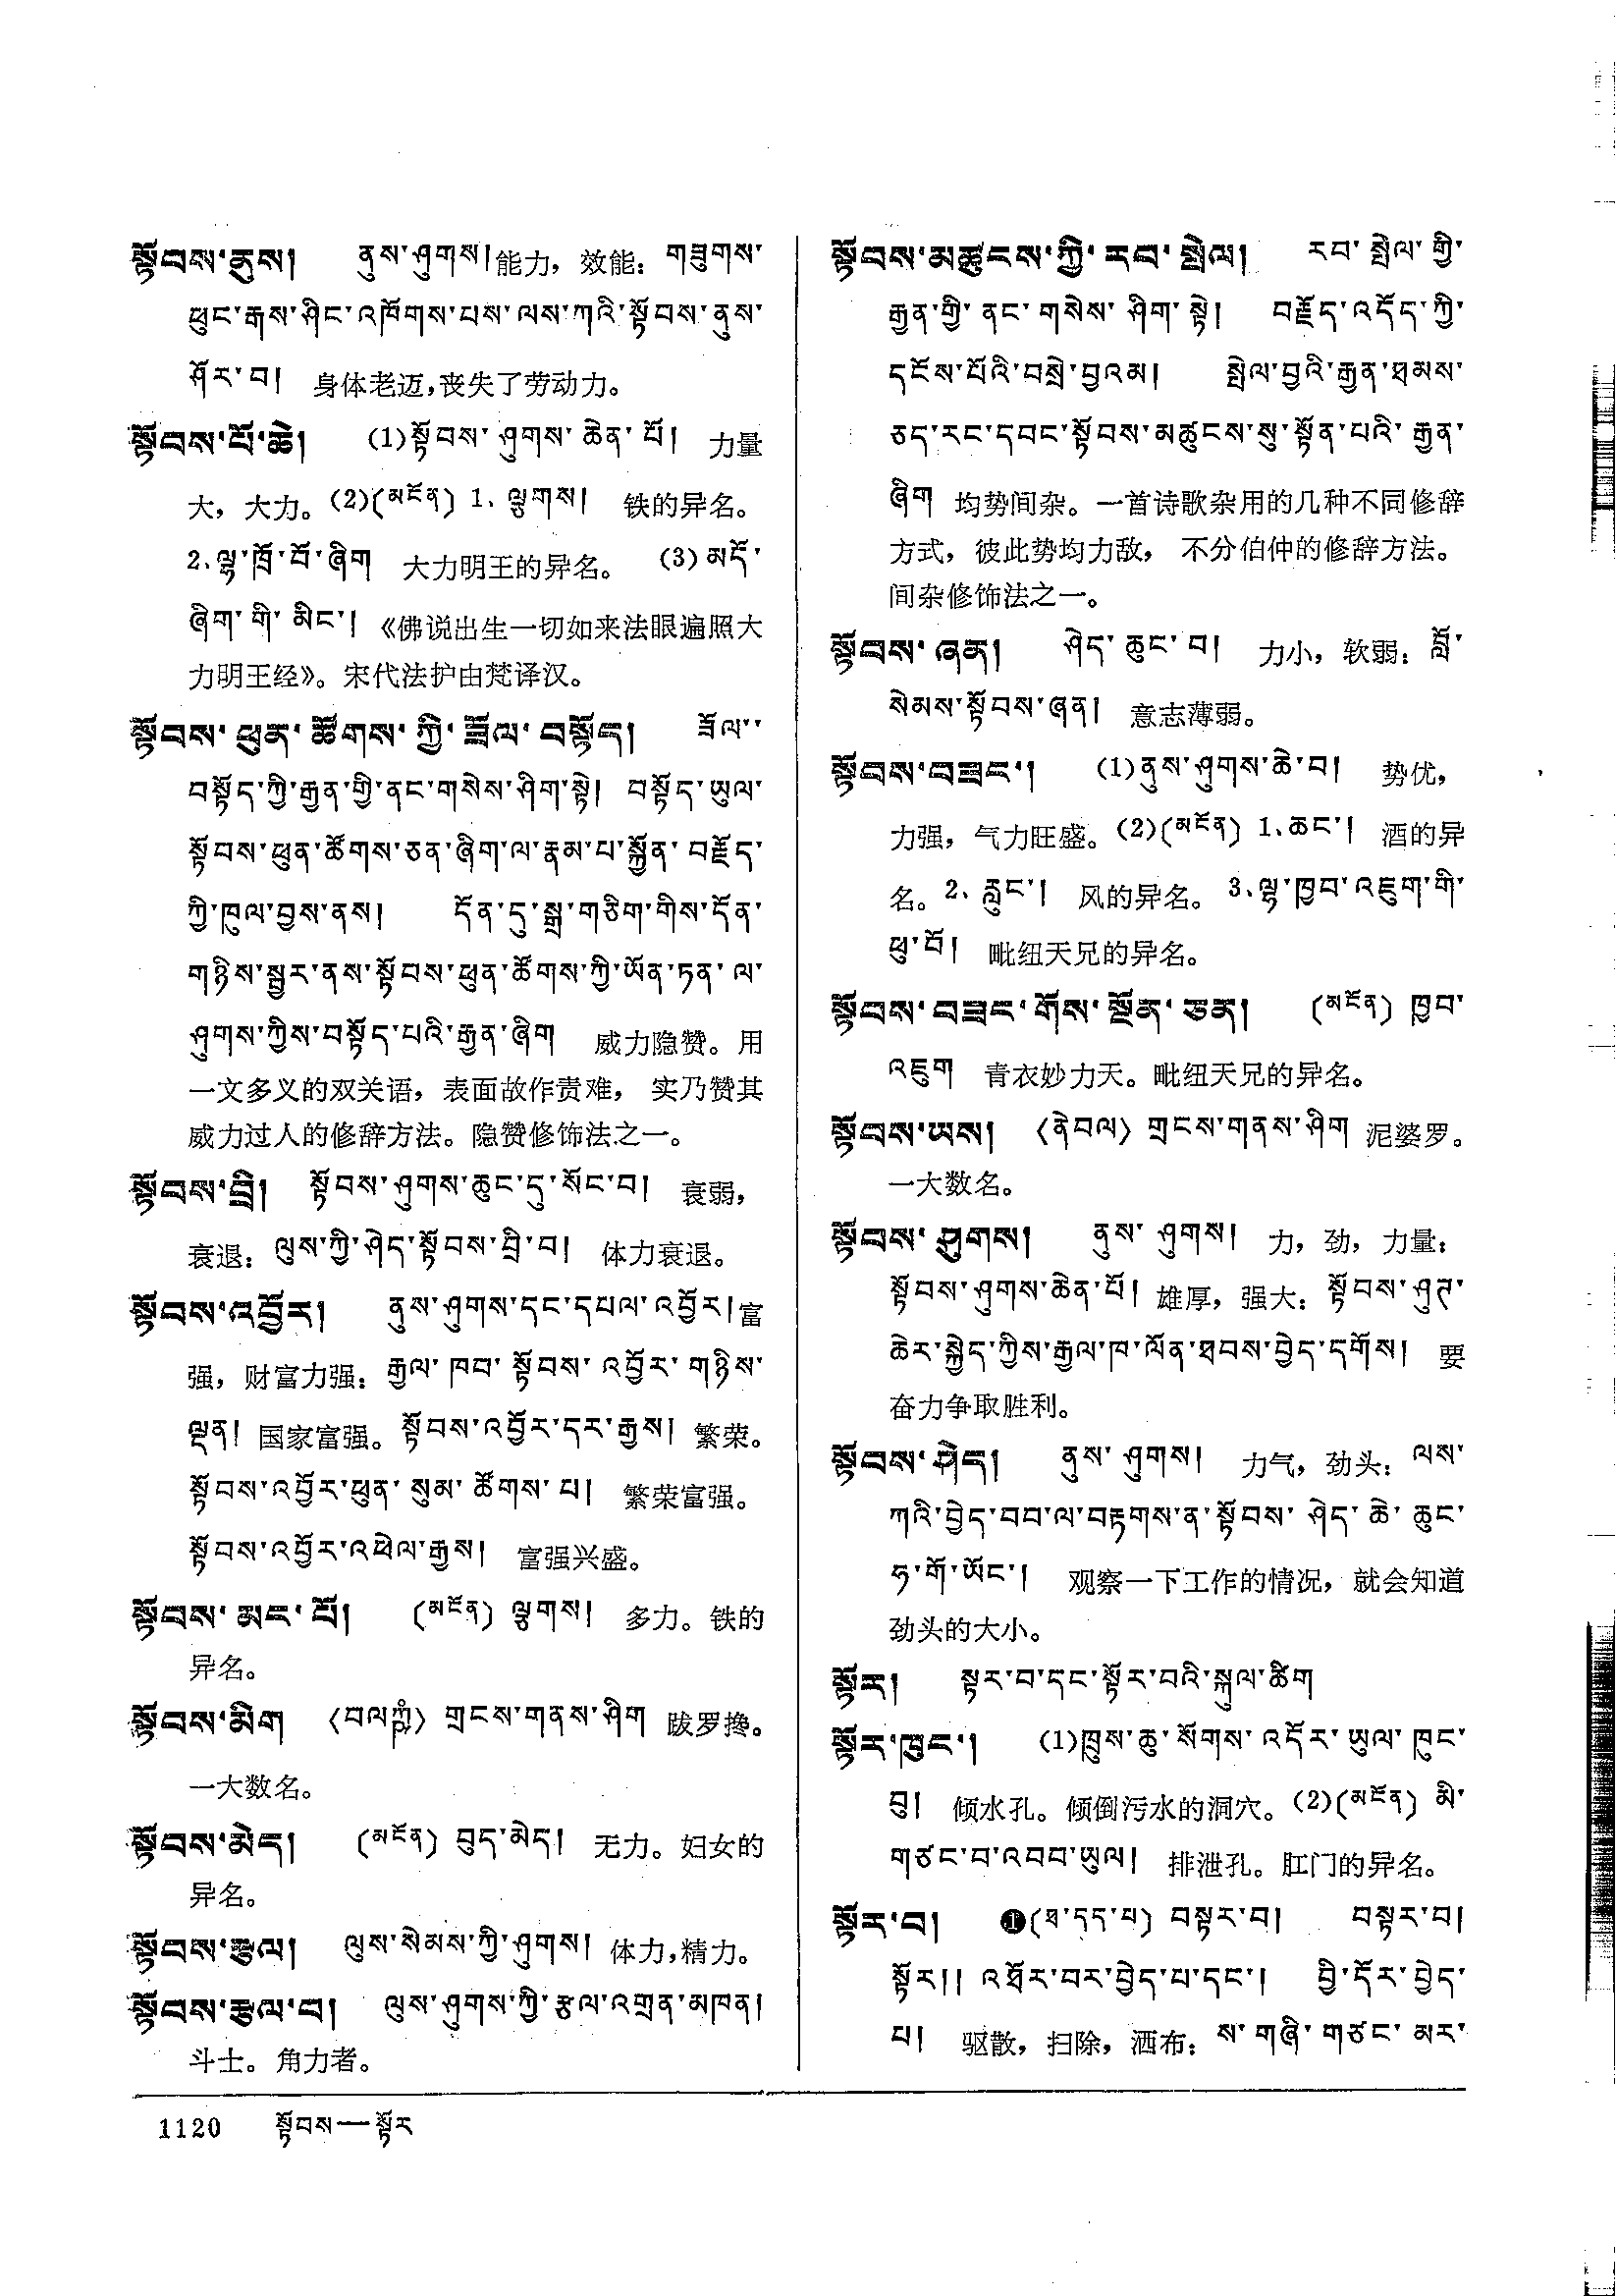 སྟོབས་ནུས། ནུས་ཤུགས།能力，效能：གཟུགས་
ཕུང་རྒས་ཤིང་འཁོགས་པས་ལས་ཀའི་སྟོབས་ནུས་
ཤོར་བ། 身体老迈，丧失了劳动力。
སྟོབས་པོ་ཆེ། (1)སྟོབས་ཤུགས་ཆེན་པོ། 力量
大，大力。(2)(མངོན) 1. ལྕགས། 铁的异名。
2.ལྷ་ཁྲོ་བོ་ཞིག 大力明王的异名。 (3)མདོ་
ཞིག་གི་མིང་། 《佛说出生一切如来法眼遍照大
力明王经》。宋代法护由梵译汉。
སྟོབས་ཕུན་ཚོགས་ཀྱི་ཟོལ་བསྟོད། ཟོལ་་
བསྟོད་ཀྱི་རྒྱན་གྱི་ནང་གསེས་ཤིག་སྟེ། བསྟོད་ཡུལ་
སྟོབས་ཕུན་ཚོགས་ཅན་ཞིག་ལ་རྣམ་པ་སྐྱོན་བརྗོད་
ཀྱི་ཁུལ་བྱས་ནས། དོན་དུ་སྒྲ་གཅིག་གིས་དོན་
གཉིས་སྦྱར་ནས་སྟོབས་ཕུན་ཚོགས་ཀྱི་ཡོན་ཏན་ལ་
ཤུགས་ཀྱིས་བསྟོད་པའི་རྒྱན་ཞིག 威力隐赞。用
一文多义的双关语，表面故作责难，实乃赞其
威力过人的修辞方法。隐赞修饰法之一。
སྟོབས་བྲི། སྟོབས་ཤུགས་ཆུང་དུ་སོང་བ། 衰弱，
衰退：ལུས་ཀྱི་ཤེད་སྟོབས་བྲི་བ། 体力衰退。
སྟོབས་འབྱོར། ནུས་ཤུགས་དང་དཔལ་འབྱོར།富
强，财富力强：རྒྱལ་ཁབ་སྟོབས་འབྱོར་གཉིས་
ལྡན། 国家富强。སྟོབས་འབྱོར་དར་རྒྱས། 繁荣。
སྟོབས་འབྱོར་ཕུན་སུམ་ཚོགས་པ། 繁荣富强。
སྟོབས་འབྱོར་འཕེལ་རྒྱས། 富强兴盛。
སྟོབས་མང་པོ། (མངོན) ལྕགས། 多力。铁的
异名。
སྟོབས་མིག 〈བལཀྵཾ〉 གྲངས་གནས་ཤིག 跋罗搀。
一大数名。
སྟོབས་མེད། (མངོན) བུད་མེད། 无力。妇女的
异名。
སྟོབས་རྩལ། ལུས་སེམས་ཀྱི་ཤུགས། 体力，精力。
སྟོབས་རྩལ་བ། ལུས་ཤུགས་ཀྱི་རྩལ་འགྲན་མཁན།
斗士。角力者。
སྟོབས་མཚུངས་ཀྱི་རབ་སྤེལ། རབ་སྤེལ་གྱི་
རྒྱན་གྱི་ནང་གསེས་ཤིག་སྟེ། བརྗོད་འདོད་ཀྱི་
དངོས་པོའི་བསྲེ་བྱའམ། སྤེལ་བྱའི་རྒྱན་ཐམས་
ཅད་རང་དབང་སྟོབས་མཚུངས་སུ་སྟོན་པའི་རྒྱན་
ཞིག 均势间杂。一首诗歌杂用的几种不同修辞
方式，彼此势均力敌，不分伯仲的修辞方法。
间杂修饰法之一。
སྟོབས་ཞན། ཤེད་ཆུང་བ། 力小，软弱：བློ་
སེམས་སྟོབས་ཞན། 意志薄弱。
སྟོབས་བཟང་། (1)ནུས་ཤུགས་ཆེ་བ། 势优，
力强，气力旺盛。(2)(མངོན) 1.ཆང་། 酒的异
名。2. རླུང་། 风的异名。3.ལྷ་ཁྱབ་འཇུག་གི་
ཕུ་བོ། 毗纽天兄的异名。
སྟོབས་བཟང་གོས་སྔོན་ཅན། (མངོན) ཁྱབ་
འཇུག 青衣妙力天。毗纽天兄的异名。
སྟོབས་ཡས། 〈ནེབལ〉 གྲངས་གནས་ཤིག 泥婆罗。
一大数名。
སྟོབས་ཤུགས། ནུས་ཤུགས། 力，劲，力量：
སྟོབས་ཤུགས་ཆེན་པོ། 雄厚，强大：སྟོབས་ཤུཊ་
ཆེར་སྐྱེད་ཀྱིས་རྒྱལ་ཁ་ལོན་ཐབས་བྱེད་དགོས། 要
奋力争取胜利。
སྟོབས་ཤེད། ནུས་ཤུགས། 力气，劲头：ལས་
ཀའི་བྱེད་བབ་ལ་བརྟགས་ན་སྟོབས་ཤེད་ཆེ་ཆུང་
ཧ་གོ་ཡོང་། 观察一下工作的情况，就会知道
劲头的大小。
སྟོར། སྟར་བ་དང་སྟོར་བའི་སྐུལ་ཚིག
སྟོར་ཁུང་། (1)ཁྲུས་ཆུ་སོགས་འདོར་ཡུལ་ཁུང་
བུ། 倾水孔。倾倒污水的洞穴。(2)(མངོན) མི་
གཙང་བ་འབབ་ཡུལ། 排泄孔。肛门的异名。
སྟོར་བ། ❶(ཐ་དད་པ) བསྟར་བ། བསྟར་བ།
སྟོར།། འཐོར་བར་བྱེད་པ་དང་། ཕྱི་དོར་བྱེད་
པ། 驱散，扫除，洒布：ས་གཞི་གཙང་མར་
1120 སྟོབས—སྟོར